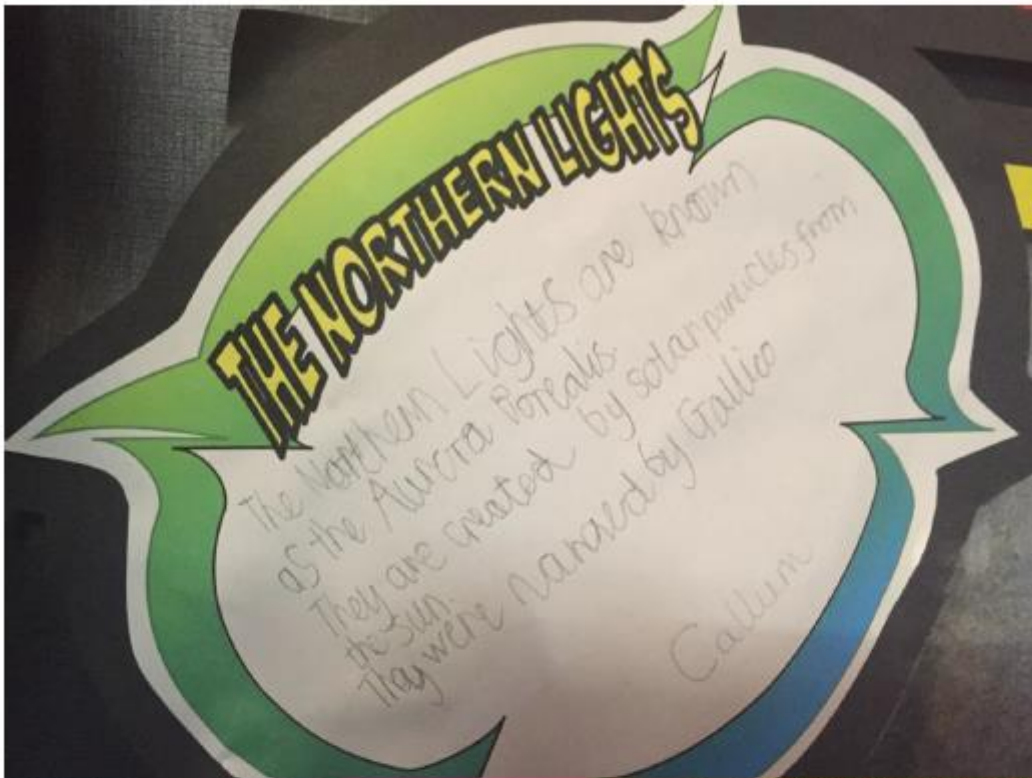 THE NORTHERN LIGHTS
The Northern Lights are known
as the Aurora Borealis.
They are created by solar particles from
the sun.
They were named by Gallico
Callum